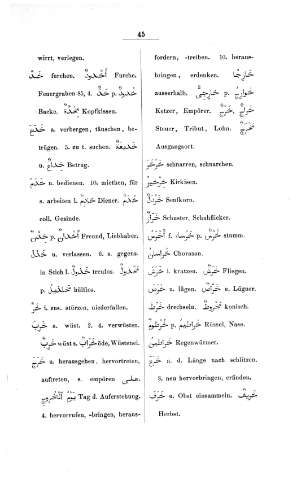 45
wirrt, verlegen.
خَدَّ furchen. أُخْدُود Furche.
Feuergraben 85, 4 خَدّ p. خُدُود
Backe. مِخَدَّة Kopfkissen.
خَدَعَ a. verbergen, täuschen, be-
trügen. 5. zu t. suchen. خَدِيعَة
u. خِدَاع Betrag.
خَدَمَ u. bedienen. 10. miethen, für
s. arbeiten l. خَادِم Diener. خَدَم
coll. Gesinde.
خِدْن p. أَخْدَان Freund, Liebhaber.
خَذَلَ u. verlassen. 6. s. gegens.
in Stich l. خَذُول treulos. مَخْذُول
p. hülflos.
خَرَّ i. sns. stürzen, niederfallen.
خَرِبَ a. wüst. 2. 4. verwüsten.
خَرِب wüst s. خَرَاب öde, Wüstenei.
خَرَجَ u. herausgehen, hervortreten,
auftreten, s. empören على
يَوْمُ ٱلْخُرُوجِ Tag d. Auferstehung.
4. hervorrufen, -bringen, heraus-
fordern, -treiben. 10. heraus-
bringen, erdenken. خَارِجًا
ausserhalb. خَارِجِىّ p. خَوَارِج
Ketzer, Empörer. خَرْج, خَرَاج
Steuer, Tribut, Lohn. مَخْرَج
Ausgangsort.
خَرْخَرَ schnarren, schnarchen.
Kirkisen.
خَرْدَل Senfkorn.
خَرَّاز Schuster, Schuhflicker.
أَخْرَس f. خَرْسَاء p. خُرْس stumm.
خُرَاسَان Chorasan.
خَرَشَ i. kratzen. Fliegen.
خَرَصَ u. lügen. خَرَّاص u. Lügner.
خَرَطَ drechseln. مَخْرُوط konisch.
خُرْطُوم p. خَرَاطِيم Rüssel, Nase.
خَرَاطِين Regenwürmer.
خَرَعَ n. d. Länge nach schlitzen.
8. neu hervorbringen, erfinden.
خَرَفَ u. Obst einsammeln. خَرِيف
Herbst.